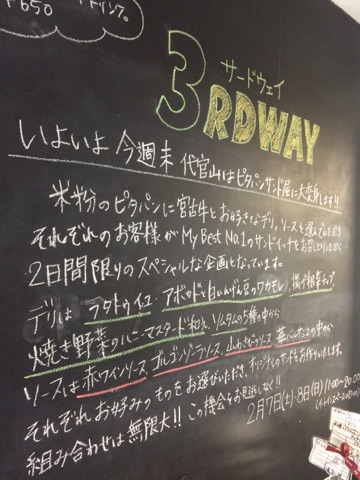 ¥650
ドリンク。
サードウェイ
3RDWAY
いよいよ今週末 代官山はピタパンサンド屋に大変身します!!
米粉のピタパンに宮古牛とお好きなデリ、ソースを選んでいただき
それぞれのお客様がMy Best No.1のサンドイッチをお召し上がりいただく
2日間限りのスペシャルな企画となっています。
デリは ラタトゥイユ、アボカドと白いんげん豆のワカモレ、揚げ根菜チップ、
焼き野菜のハニーマスタード和え、ソムタムの5種の中から
ソースは赤ワインソース、ゴルゴンゾーラソース、山わさびソース、葉ハンチョコの中から
それぞれお好みのものをお選びいただき、オリジナルのサンドをお作りいたします。
組み合わせは無限大!! この機会をお見逃しなく!!
2月7日(土)・8日(日) 11:00~20:00